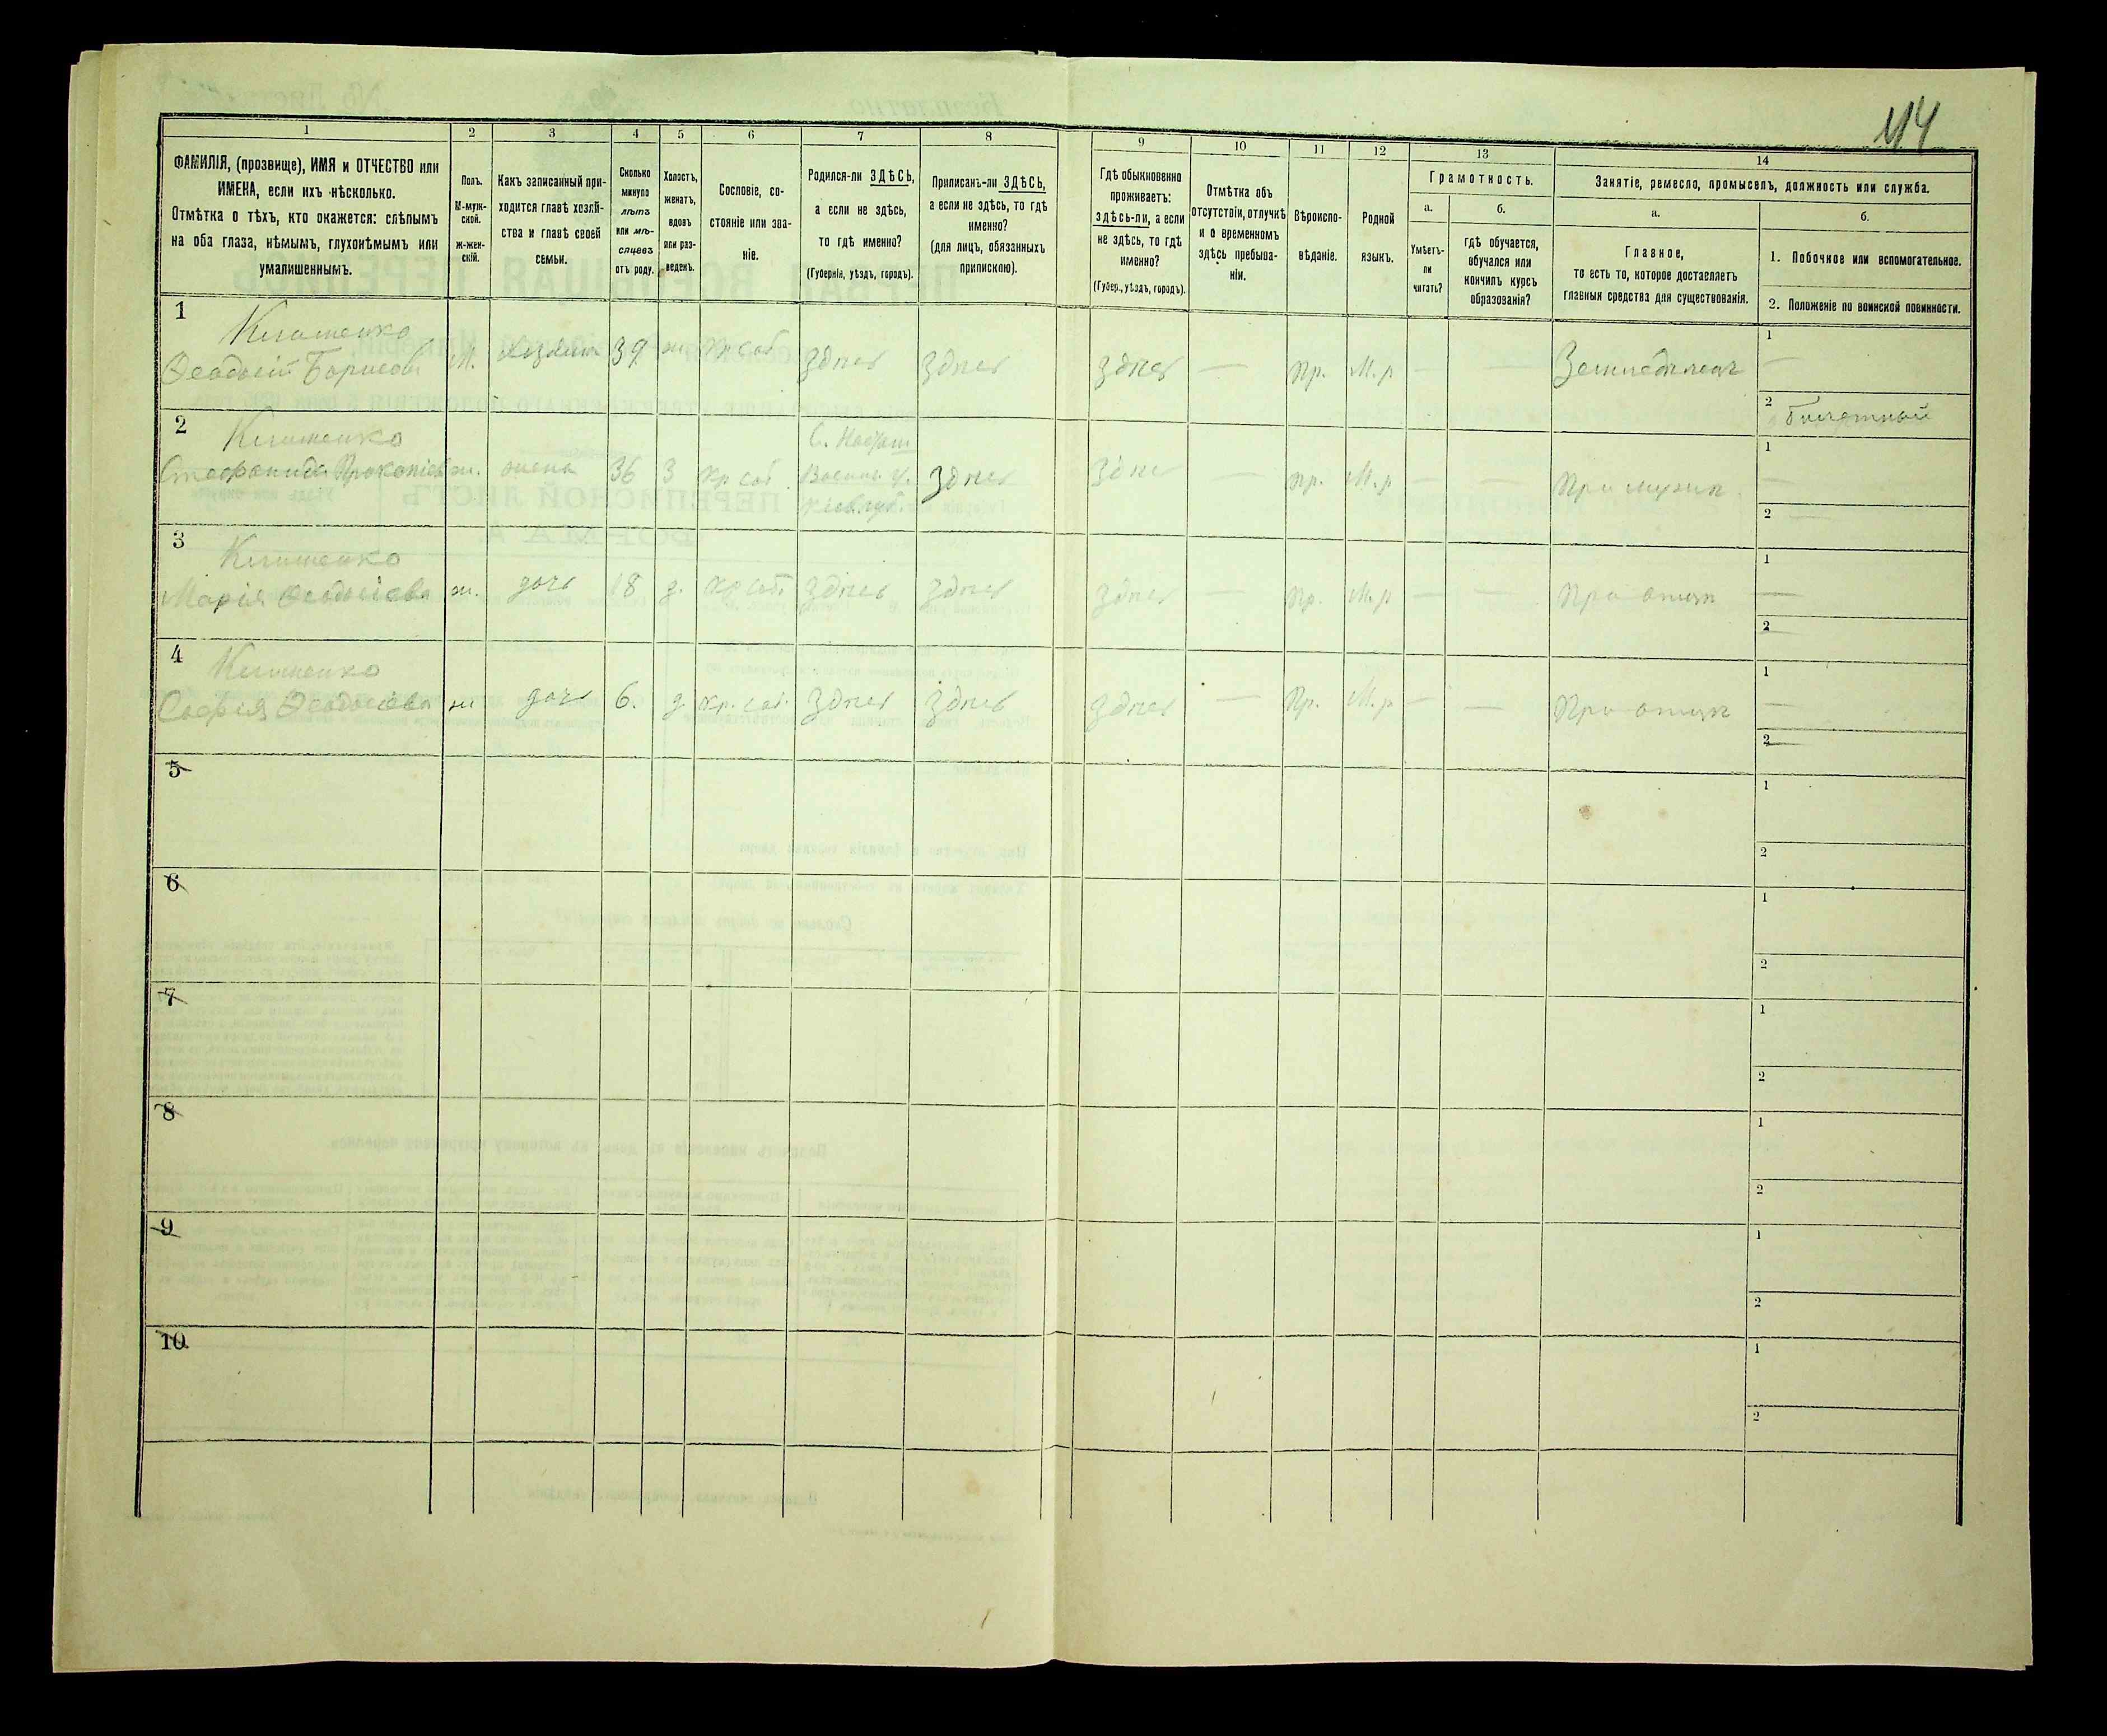 114
1 2 3 4 5 6 7 8 9 10 11 12 13 14
ФАМИЛІЯ, (прозвище), ИМЯ и ОТЧЕСТВО или
ИМЕНА, если ихъ нѣсколько.
Отмѣтка о тѣхъ, кто окажется: слѣпымъ
на оба глаза, нѣмымъ, глухонѣмымъ или
умалишеннымъ.
Полъ.
М-муж-
ской.
ж-жен-
скій.
Какъ записанный при-
ходится главѣ хозяй-
ства и главѣ своей
семьи.
Сколько
минуло
лѣтъ
или мѣ-
сяцевъ
отъ роду.
Холостъ,
женатъ,
вдовъ
или раз-
веденъ.
Сословіе, со-
стояніе или зва-
ніе.
Родился-ли ЗДѢСЬ,
а если не здѣсь,
то гдѣ именно?
(Губернія, уѣздъ, городъ).
Приписанъ-ли ЗДѢСЬ,
а если не здѣсь, то гдѣ
именно?
(для лицъ, обязанныхъ
припискою).
Гдѣ обыкновенно
проживаетъ:
здѣсь-ли, а если
не здѣсь, то гдѣ
именно?
(Губер., уѣздъ, городъ).
Отмѣтка объ
отсутствіи, отлучкѣ
и о временномъ
здѣсь пребыва-
ніи.
Вѣроиспо-
вѣданіе.
Родной
языкъ.
Грамотность.
а.
Умѣетъ-
ли
читать?
б.
гдѣ обучается,
обучался или
кончилъ курсъ
образованія?
Занятіе, ремесло, промыселъ, должность или служба.
а.
Главное,
то есть то, которое доставляетъ
главныя средства для существованія.
б.
1. Побочное или вспомогательное.
2. Положеніе по воинской повинности.
1
Ѳеодосій Борисовъ М. хозяинъ 39 ж. кр соб здѣсь здѣсь здѣсь — пр. М.р — — Земледѣлецъ
1 —
2
2
Стефанида Прокопіева ж. жена 36 З кр соб. Кіев. губ. здѣсь здѣсь — пр. М.р — — При мужѣ
1 —
2
3
Марія Ѳеодосіева ж. дочь 18 д. кр соб. здѣсь здѣсь здѣсь — пр. М.р — — При отцѣ
1 —
2
4
Софія Ѳеодосіева ж дочь 6. д кр. соб. здѣсь здѣсь здѣсь — Пр. М.р — — При отцѣ
1 —
2
5
1
2
6
1
2
7
1
2
8
1
2
9
1
2
10.
1
2